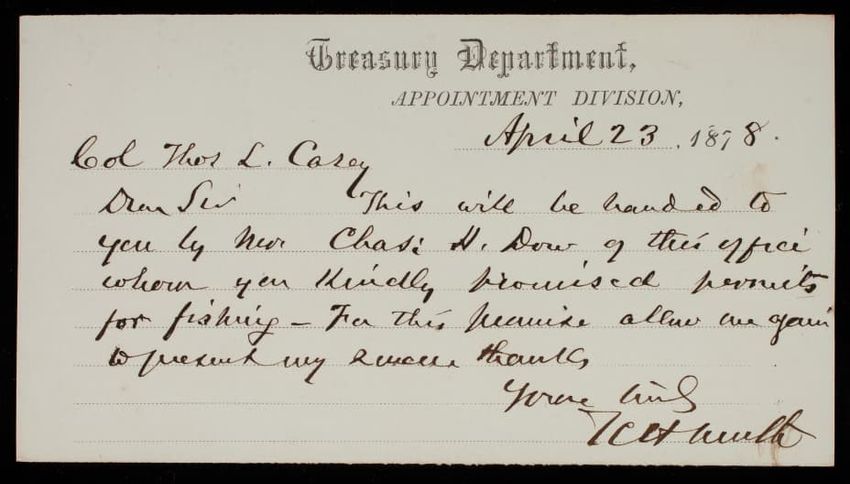 Treasury Department,
APPOINTMENT DIVISION,
April 23, 1878.
Col Thos L. Casey
Dear Sir This will be handed to
you by Mr Chas: H. Dow of this office
whom you kindly promised permits
for fishing – For this promise allow me again
to present my sincere thanks
Yours truly
T C H Smith